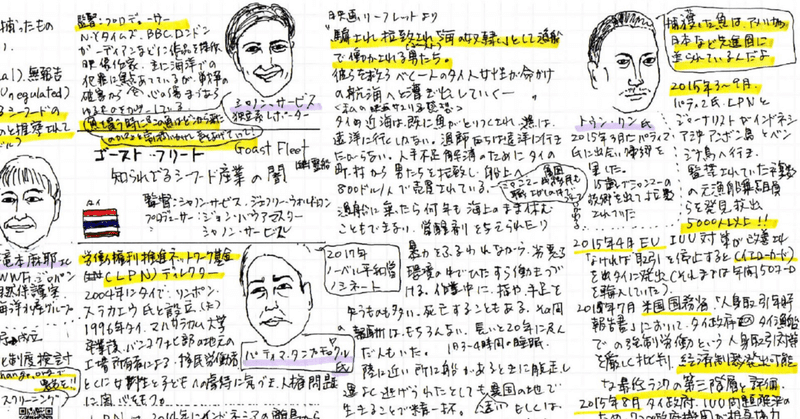 捕ったもの
無報告
Unregulated)
シーフードの
WWFジャパン
自然保護室
海洋水産グループ
と制度検討
スクリーニング
監督・プロデューサー
NYタイムズ、BBC、ロンドン
ガーディアンなどに作品を提供
映像作家。主に海洋での
シャノン・サービス
独立系レポーター
ゴースト フリート Goast Fleet
幽霊船
知られざるシーフード産業の闇
監督:シャノン・サービス、ジェフリー・ウォルドロン
プロデューサー:ジョン・バウアマスター
シャノン・サービス
タイ
労働権利推進ネットワーク基金
(LPN)ディレクター
2004年にタイで、ソンポン・
スラカエウ氏と設立(夫)
1996年タイ、マハサラカム大学
卒業後、バンコクなど都心地元の
工場所有者による、移民労働者
とくに女性と子どもへの虐待に気づき、人権問題
に関心をもつ
パティマ・タンプチャヤクル氏
2017年
ノーベル平和賞
ノミネート
映画リーフレットより
「騙され拉致され「海の奴隷」として漁船
で働かされる男たち。
彼らを救うべく一人のタイ人女性が命がけ
の航海へと漕ぎ出していく―
タイの近海は既に魚がとりつくされ、漁は
遠洋に行くしかない。漁師たちは遠洋に行き
たがらない。人手不足解消のためにタイの
町、村から男たちを拉致し、船上へ
800ドル/人で売買されている。
漁船に乗ったら何年も海上のまま休む
こともできない。覚醒剤を与えられたり
暴力をふるわれながら、劣悪な
環境の中でひたすら働きつづ
ける。作業中に、指や、手足を
失うものも多い。死亡することもある。その間
の報酬はもちろんない。長いと20年に及ん
だ人もいた。
1日3~4時間の睡眠
陸に近い所に船があるときに脱走し
運よく逃げられたとしても異国の地で
生きることで精一杯。
トゥン・リン氏
2015年3月にパティマ
氏に出会い帰郷を
果した。
捕獲した魚は、アメリカ
日本など先進国に
送られているんだよ
2015年3~9月
パティマ氏、LPNと
ジャーナリストがインドネシ
ア、アンボン島とベン
ジナ島へ行き、
監禁されていた
の元漁船乗組員
らを発見、救出
5000人以上!!
2015年4月 EU IUU対策が改善し
なければ取引を停止すると(イエローカード)
をタイに発出(それまでは年間50万トン
を輸入していた)。
2015年7月 米国国務省「人身取引年次
報告書」において、タイ政府のタイ漁船
での強制労働という人身取引対策
を厳しく批判、経済制裁発出可能
な最低ランクの第三階層と評価。
2015年8月 タイ政府、IUU問題解決の